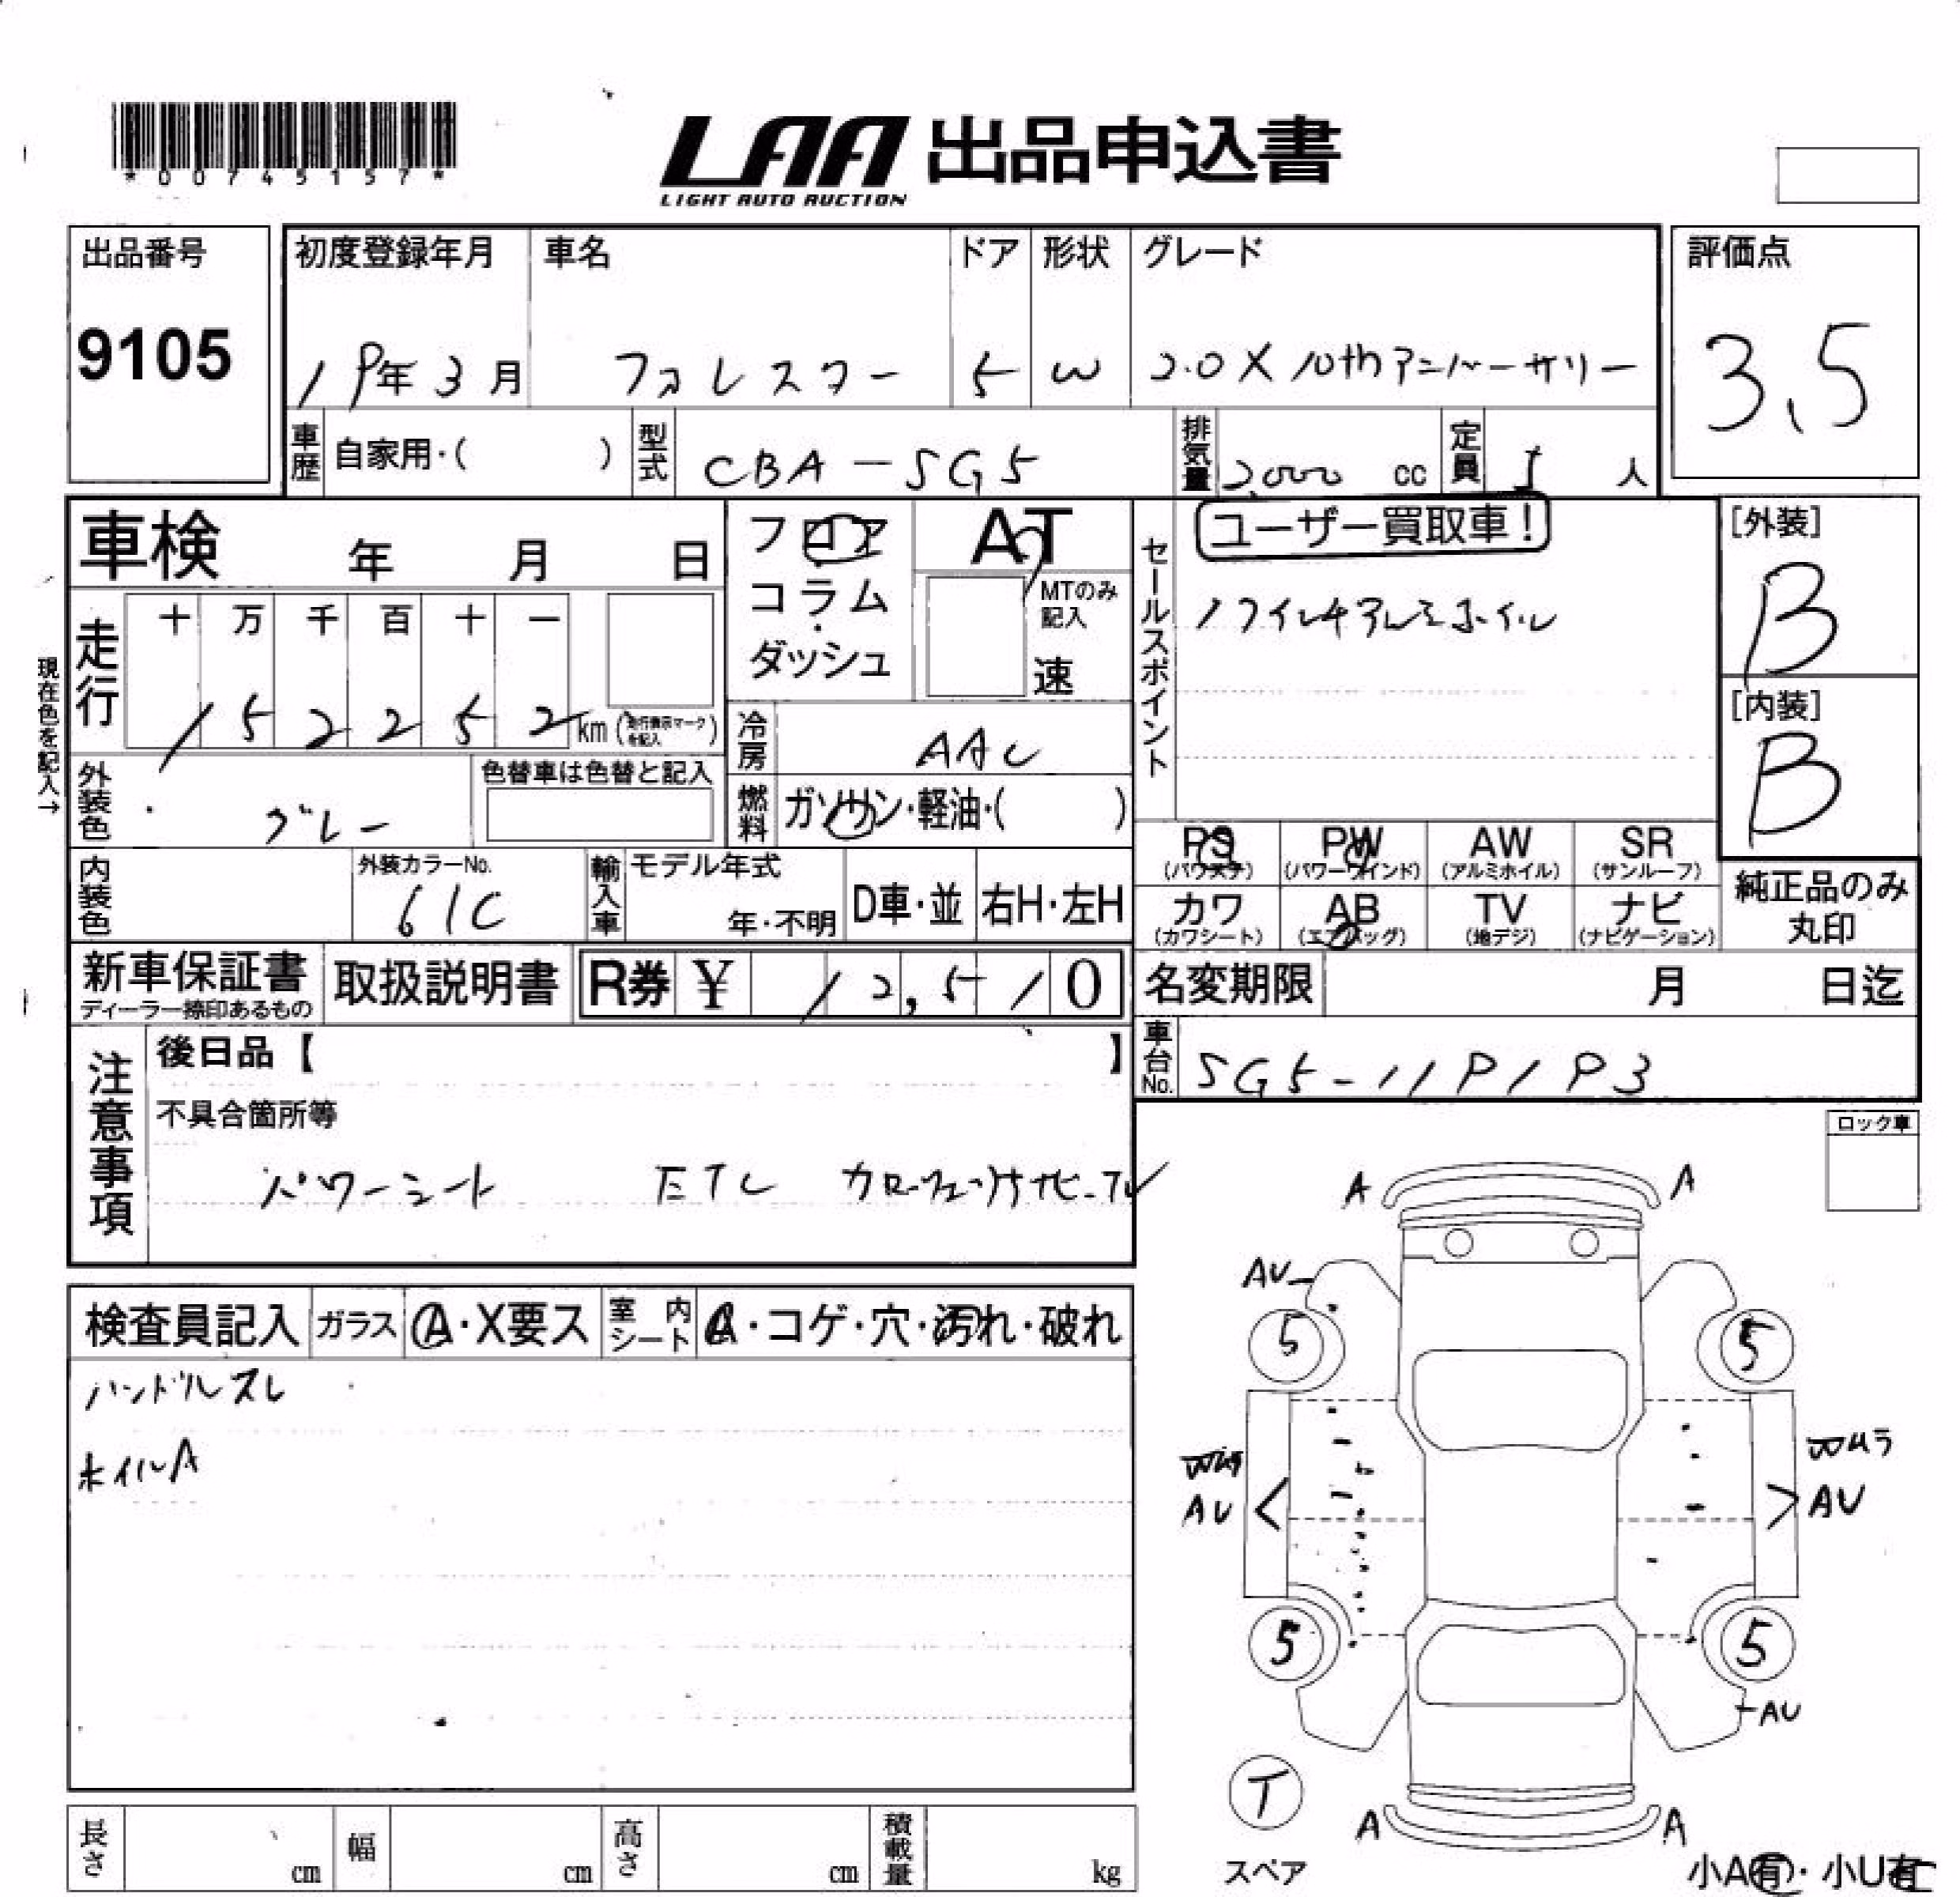 *00745157*
LAA 出品申込書
LIGHT AUTO AUCTION
出品番号
9105
初度登録年月
19年3月
車名
フォレスター
ドア
5
形状
W
グレード
2.0X 10thアニバーサリー
評価点
3.5
車歴 自家用・( )
型式 CBA-SG5
排気量 2,000 cc
定員 5 人
車検 年 月 日
フロア
コラム
ダッシュ
AT
MTのみ記入
速
セールスポイント
ユーザー買取車!
17インチアルミホイル
[外装]
B
[内装]
B
現在色を記入→
走行
十 万 千 百 十 一
1 5 2 2 5 2 km (走行表示マークを記入)
冷房 AAC
外装色 グレー
色替車は色替と記入
燃料 ガソリン・軽油・( )
PS (パワステ)
PW (パワーウインド)
AW (アルミホイル)
SR (サンルーフ)
カワ (カワシート)
AB (エアバッグ)
TV (地デジ)
ナビ (ナビゲーション)
純正品のみ丸印
内装色
外装カラーNo.
61C
輸入車
モデル年式
年・不明
D車・並
右H・左H
新車保証書
ディーラー捺印あるもの
取扱説明書
R券 ¥ 12,510
名変期限 月 日迄
車台No. SG5-119193
注意事項
後日品【 】
不具合箇所等
パワーシート ETC カロッツェリアナビ-TV
ロック車
検査員記入
ガラス A・X要ス
室内シート A・コゲ・穴・汚れ・破れ
ハンドルスレ
ホイルA
A A
AU
5 5
Wムラ
AU AU
5 5
AU
T
スペア
A A
小A有・小U有
長さ cm
幅 cm
高さ cm
積載量 kg